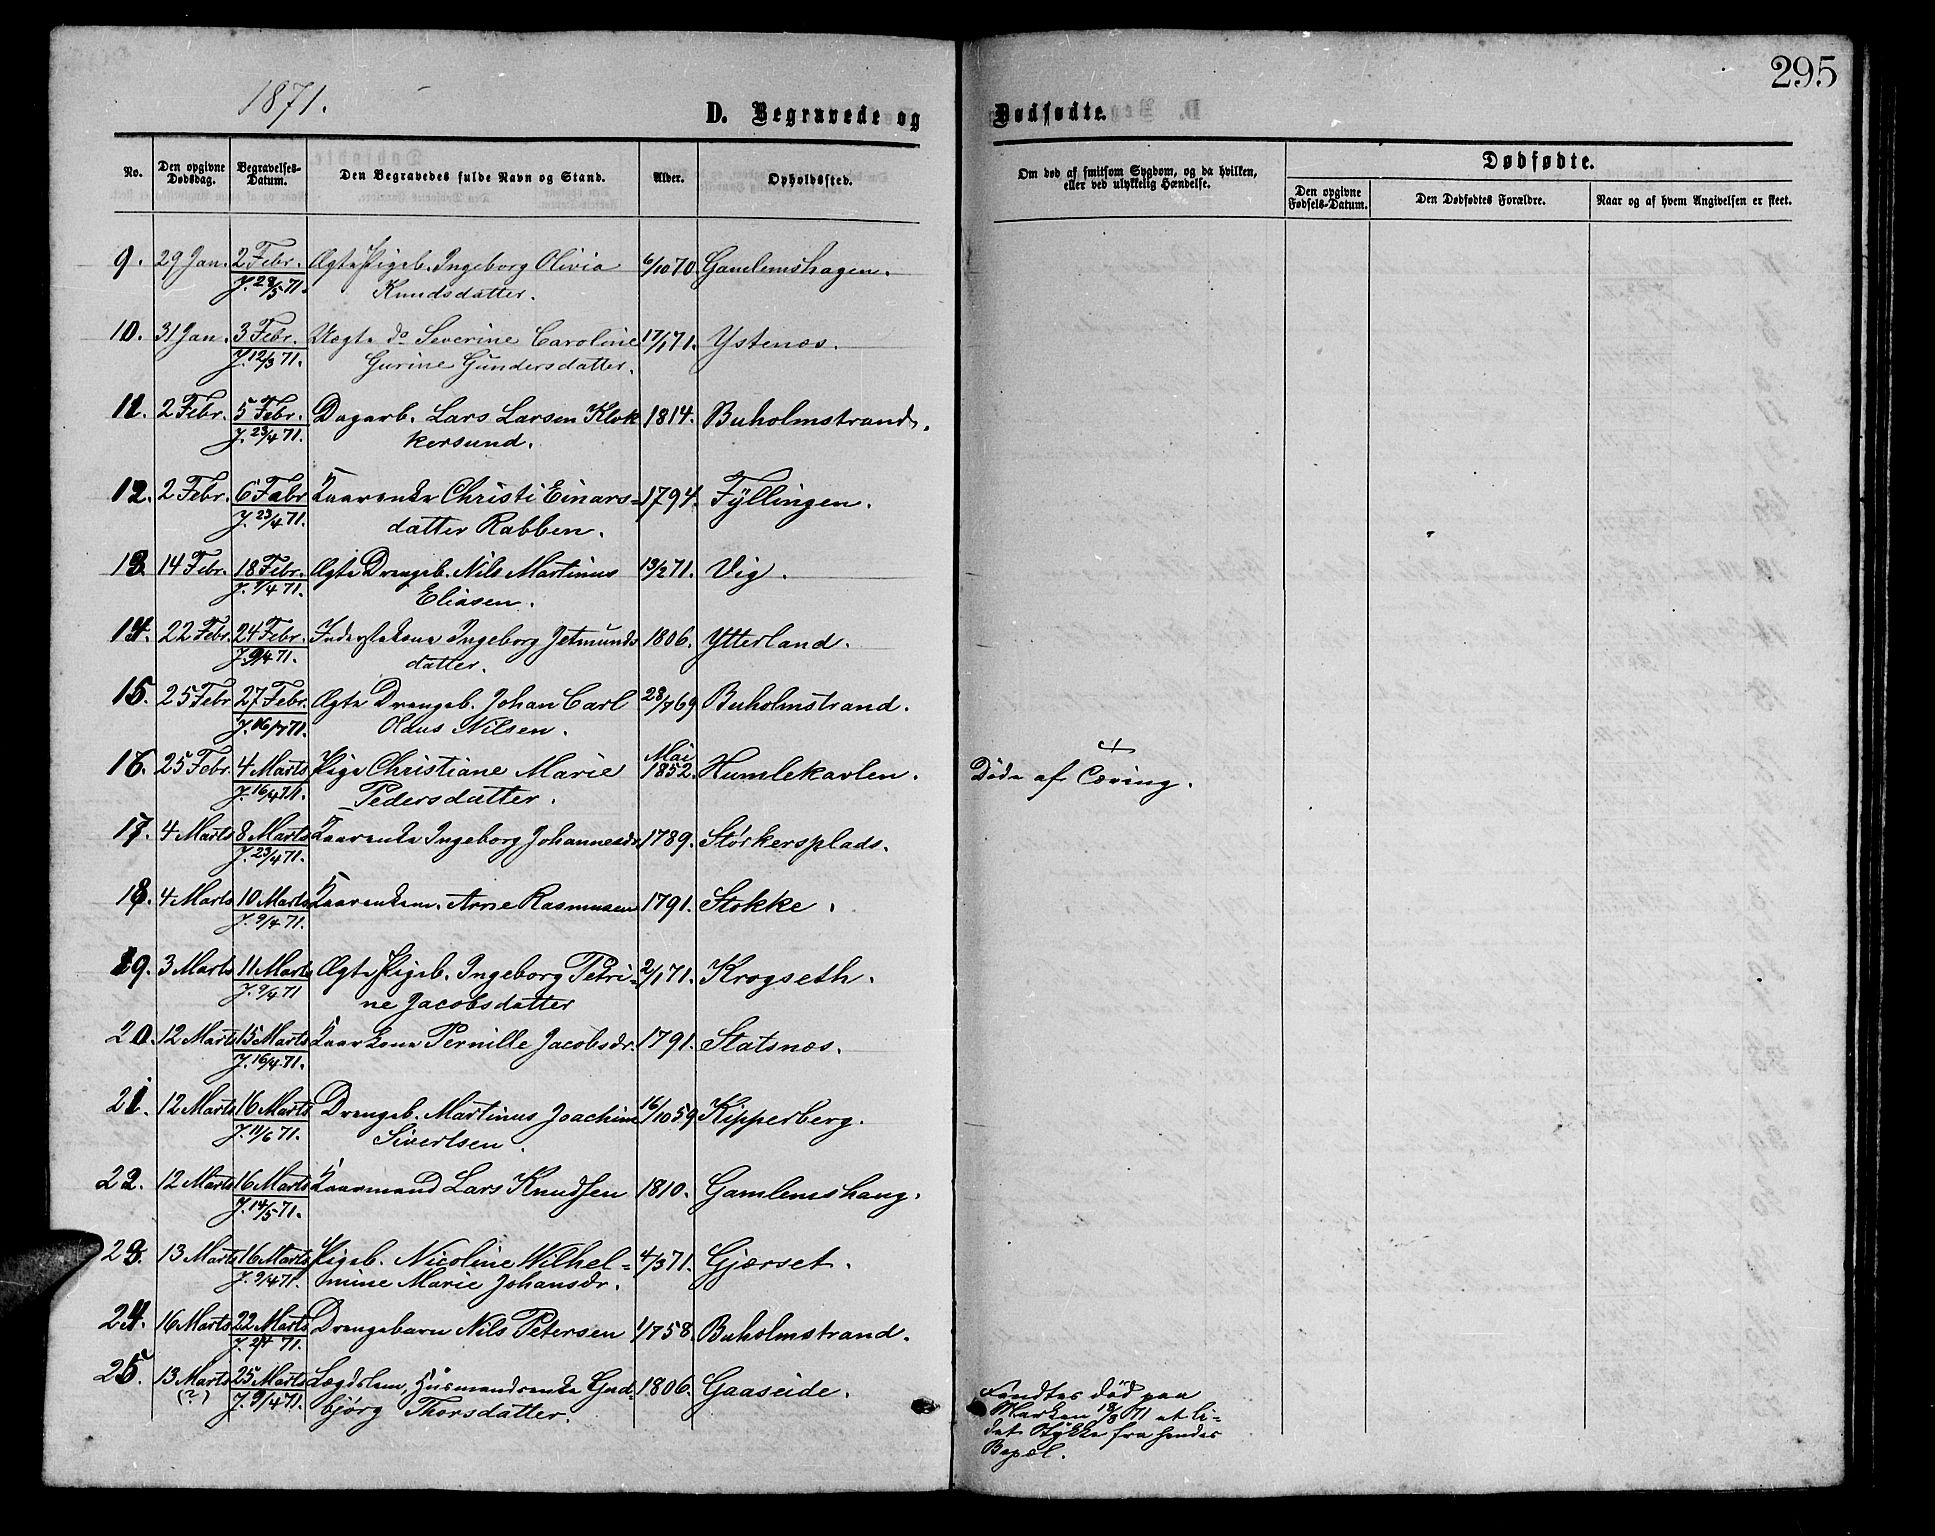 295
1871.
D. Begravede og Dødfødte.
No.
Den opgivne Dødsdag.
Begravelses-Datum.
Den Begravedes fulde Navn og Stand.
Alder.
Opholdssted.
Om død af smitsom Sygdom, og da hvilken, eller ved ulykkelig Hændelse.
Dødfødte.
Den opgivne Fødsels-Datum.
Den Dødfødtes Forældre.
Naar og af hvem Angivelsen er skeet.
9. 29 Jan. 2 Febr. Ægte Pigeb. Ingeborg Olivia 6/10 70 Gamlemshagen.
J. 28/5 71. Knudsdatter.
10. 31 Jan. 3 Febr. Uægte do Severine Caroline 17/1 71. Ystenæs.
J. 12/3 71. Gurine Gundersdatter.
11. 2 Febr. 5 Febr. Dagarb. Lars Larsen Klok 1814. Buholmstrand.
J. 23/4 71. kersund.
12. 2 Febr. 6 Febr Kaarenke Christi Einars= 1794. Fyllingen.
J. 23/4 71. datter Rabben.
13. 14 Febr. 18 Febr. Ægte Drengeb. Nils Martinus 13/2 71. Vig.
J. 9/4 71. Eliasen.
14. 22 Febr. 24 Febr. Inderstekone Ingeborg Jetmunds 1806. Ytterland.
J. 9/4 71. datter.
15. 25 Febr 27 Febr. Ægte Drengeb. Johan Carl 28/7 69 Buholmstrand.
J. 16/7 71. Olaus Nilsen.
16. 25 Febr. 4 Marts Pige Christiane Marie Mai 1852. Humlekavlen. Døde af Tæring.
J. 16/4 71. Pedersdatter.
17. 4 Marts 8 Marts Kaarenke Ingeborg Johannesdr 1789. Størkersplads.
J. 23/4 71.
18. 4 Marts 10 Marts Kaarenkem. Arne Rasmusen 1791. Stokke.
J. 9/4 71.
19. 3 Marts 11 Marts Ægte Pigeb. Ingeborg Petri= 2/1 71. Krogseth.
J. 9/4 71 ne Jacobsdatter
20. 12 Marts 15 Marts Kaarkone Pernille Jacobsdr. 1791. Statsnæs.
J. 16/4 71.
21. 12 Marts 16 Marts Drengeb. Martinus Joachim 16/10 59 Kipperberg.
J. 11/6 71. Sivertsen.
22. 12 Marts 16 Marts Kaarmand Lars Knudsen 1810. Gamlemshaug.
J. 14/5 71.
23. 13 Marts 16 Marts Pigeb. Nicoline Wilhel= 4/3 71. Gjærset.
J. 9/4 71. mine Marie Johansdr.
24. 16 Marts 22 Marts Drengebarn Nils Petersen 1/7 58. Buholmstrand.
J. 2/4 71.
25. 13 Marts 25 Marts Lægdslem, Husmandsenke Gud= 1806. Gaaseide.
(?) J. 9/4 71. bjørg Thorsdatter.
Fandtes død paa
Marken 18/3 71 et li=
det Stykke fra hendes
Bopæl.